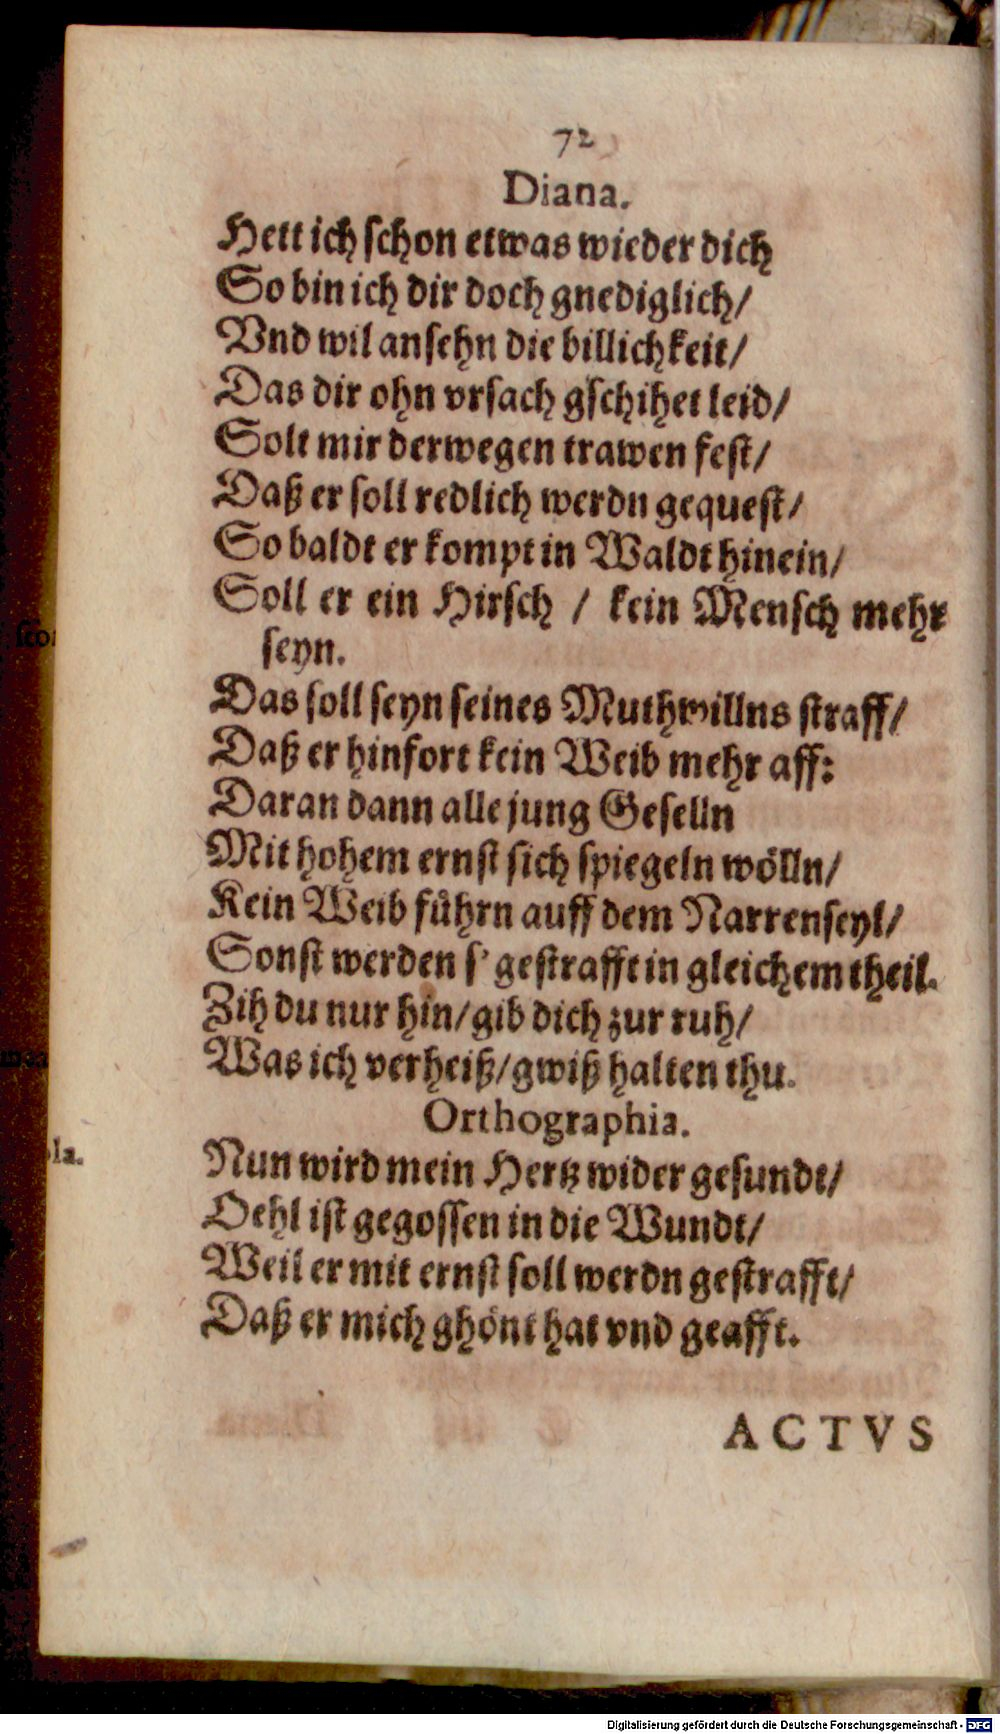 72
Diana.
Hett ich ſchon etwas wieder dich
So bin ich dir doch gnediglich/
Vnd wil anſehn die billichkeit/
Das dir ohn vrſach gſchihet leid/
Solt mir derwegen trawen feſt/
Daß er ſoll redlich werdn gequeſt/
So baldt er kompt in Waldt hinein/
Soll er ein Hirſch / kein Menſch mehr
ſeyn.
Das ſoll ſeyn ſeines Muthwillns ſtraff/
Daß er hinfort kein Weib mehr aff:
Daran dann alle jung Geſelln
Mit hohem ernſt ſich ſpiegeln wölln/
Kein Weib führn auff dem Narrenſeyl/
Sonſt werden ſ' geſtrafft in gleichem theil.
Zih du nur hin/gib dich zur ruh/
Was ich verheiß/gwiß halten thu.
Orthographia.
Nun wird mein Hertz wider geſundt/
Oehl iſt gegoſſen in die Wundt/
Weil er mit ernſt ſoll werdn geſtrafft/
Daß er mich ghönt hat vnd geafft.
ACTVS
Digitalisierung gefördert durch die Deutsche Forschungsgemeinschaft - DFG